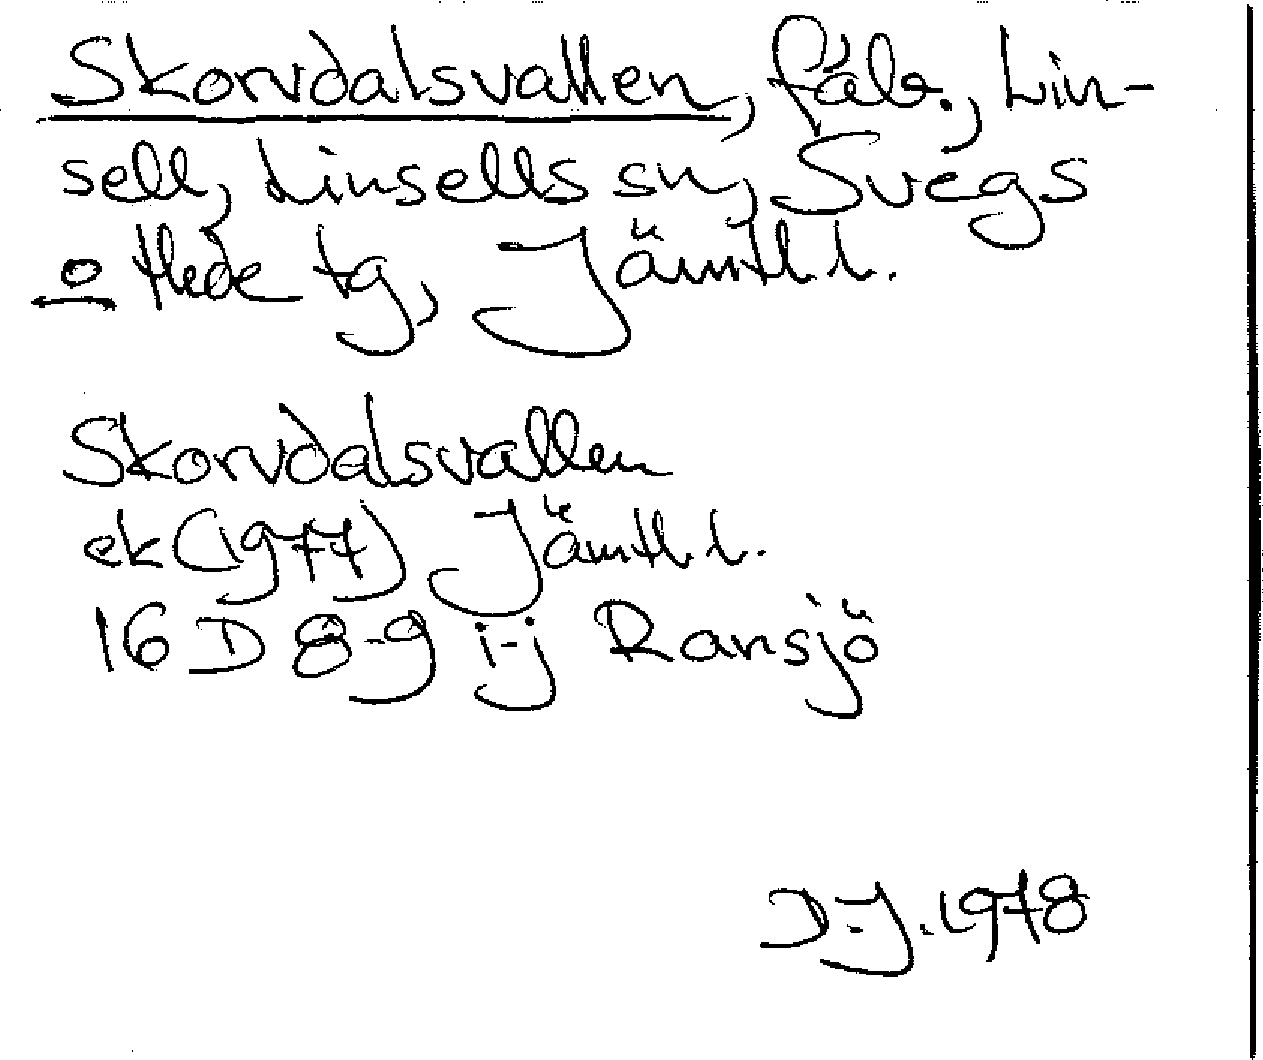 Skorvdalsvallen, fäb., Lin-
sell, Linsells sn, Svegs
o Hede tg, Jämtl l.
Skorvdalsvallen
ek (1977) Jämtl. l.
16 D 8-9 i-j Ransjö
D-J. 1978